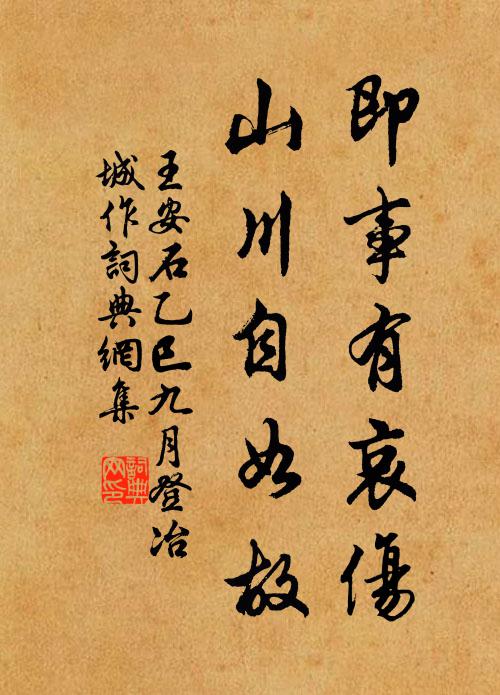 即事有哀傷
山川自如故
王安石乙巳九月登冶
城作詞典網集
詞典
网印